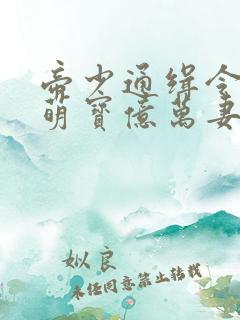 帝少通缉令
萌寳億萬妻
姒良
未任同意禁止转载